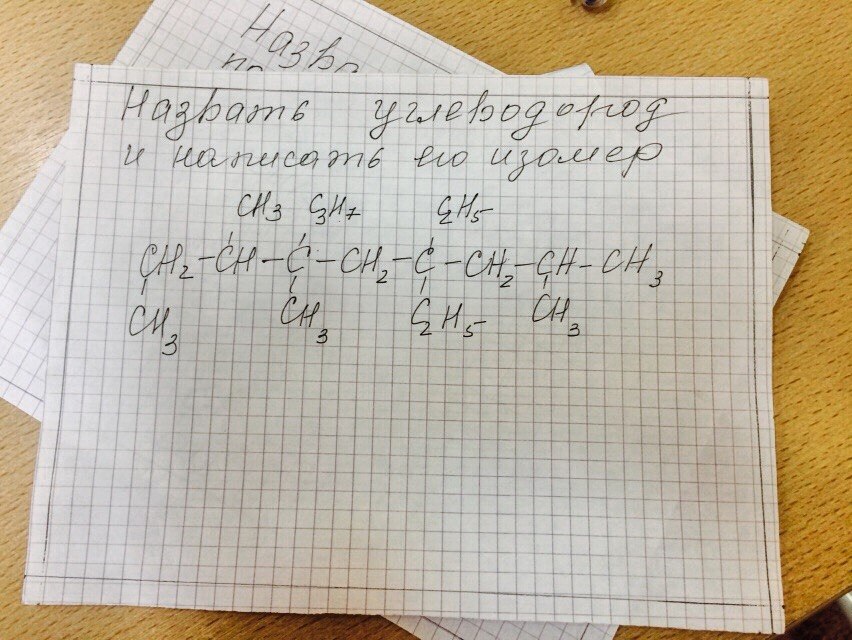 Назв
Назвать углеводород
и написать его изомер
CH3 C3H7 C2H5
CH2-CH-C-CH2-C-CH2-CH-CH3
CH3 CH3 C2H5 CH3